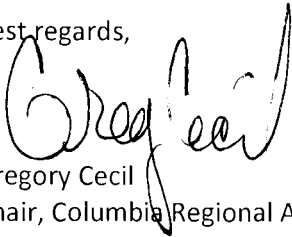 est regards,
Greg Cecil
regory Cecil
hair, Columbia Regional A